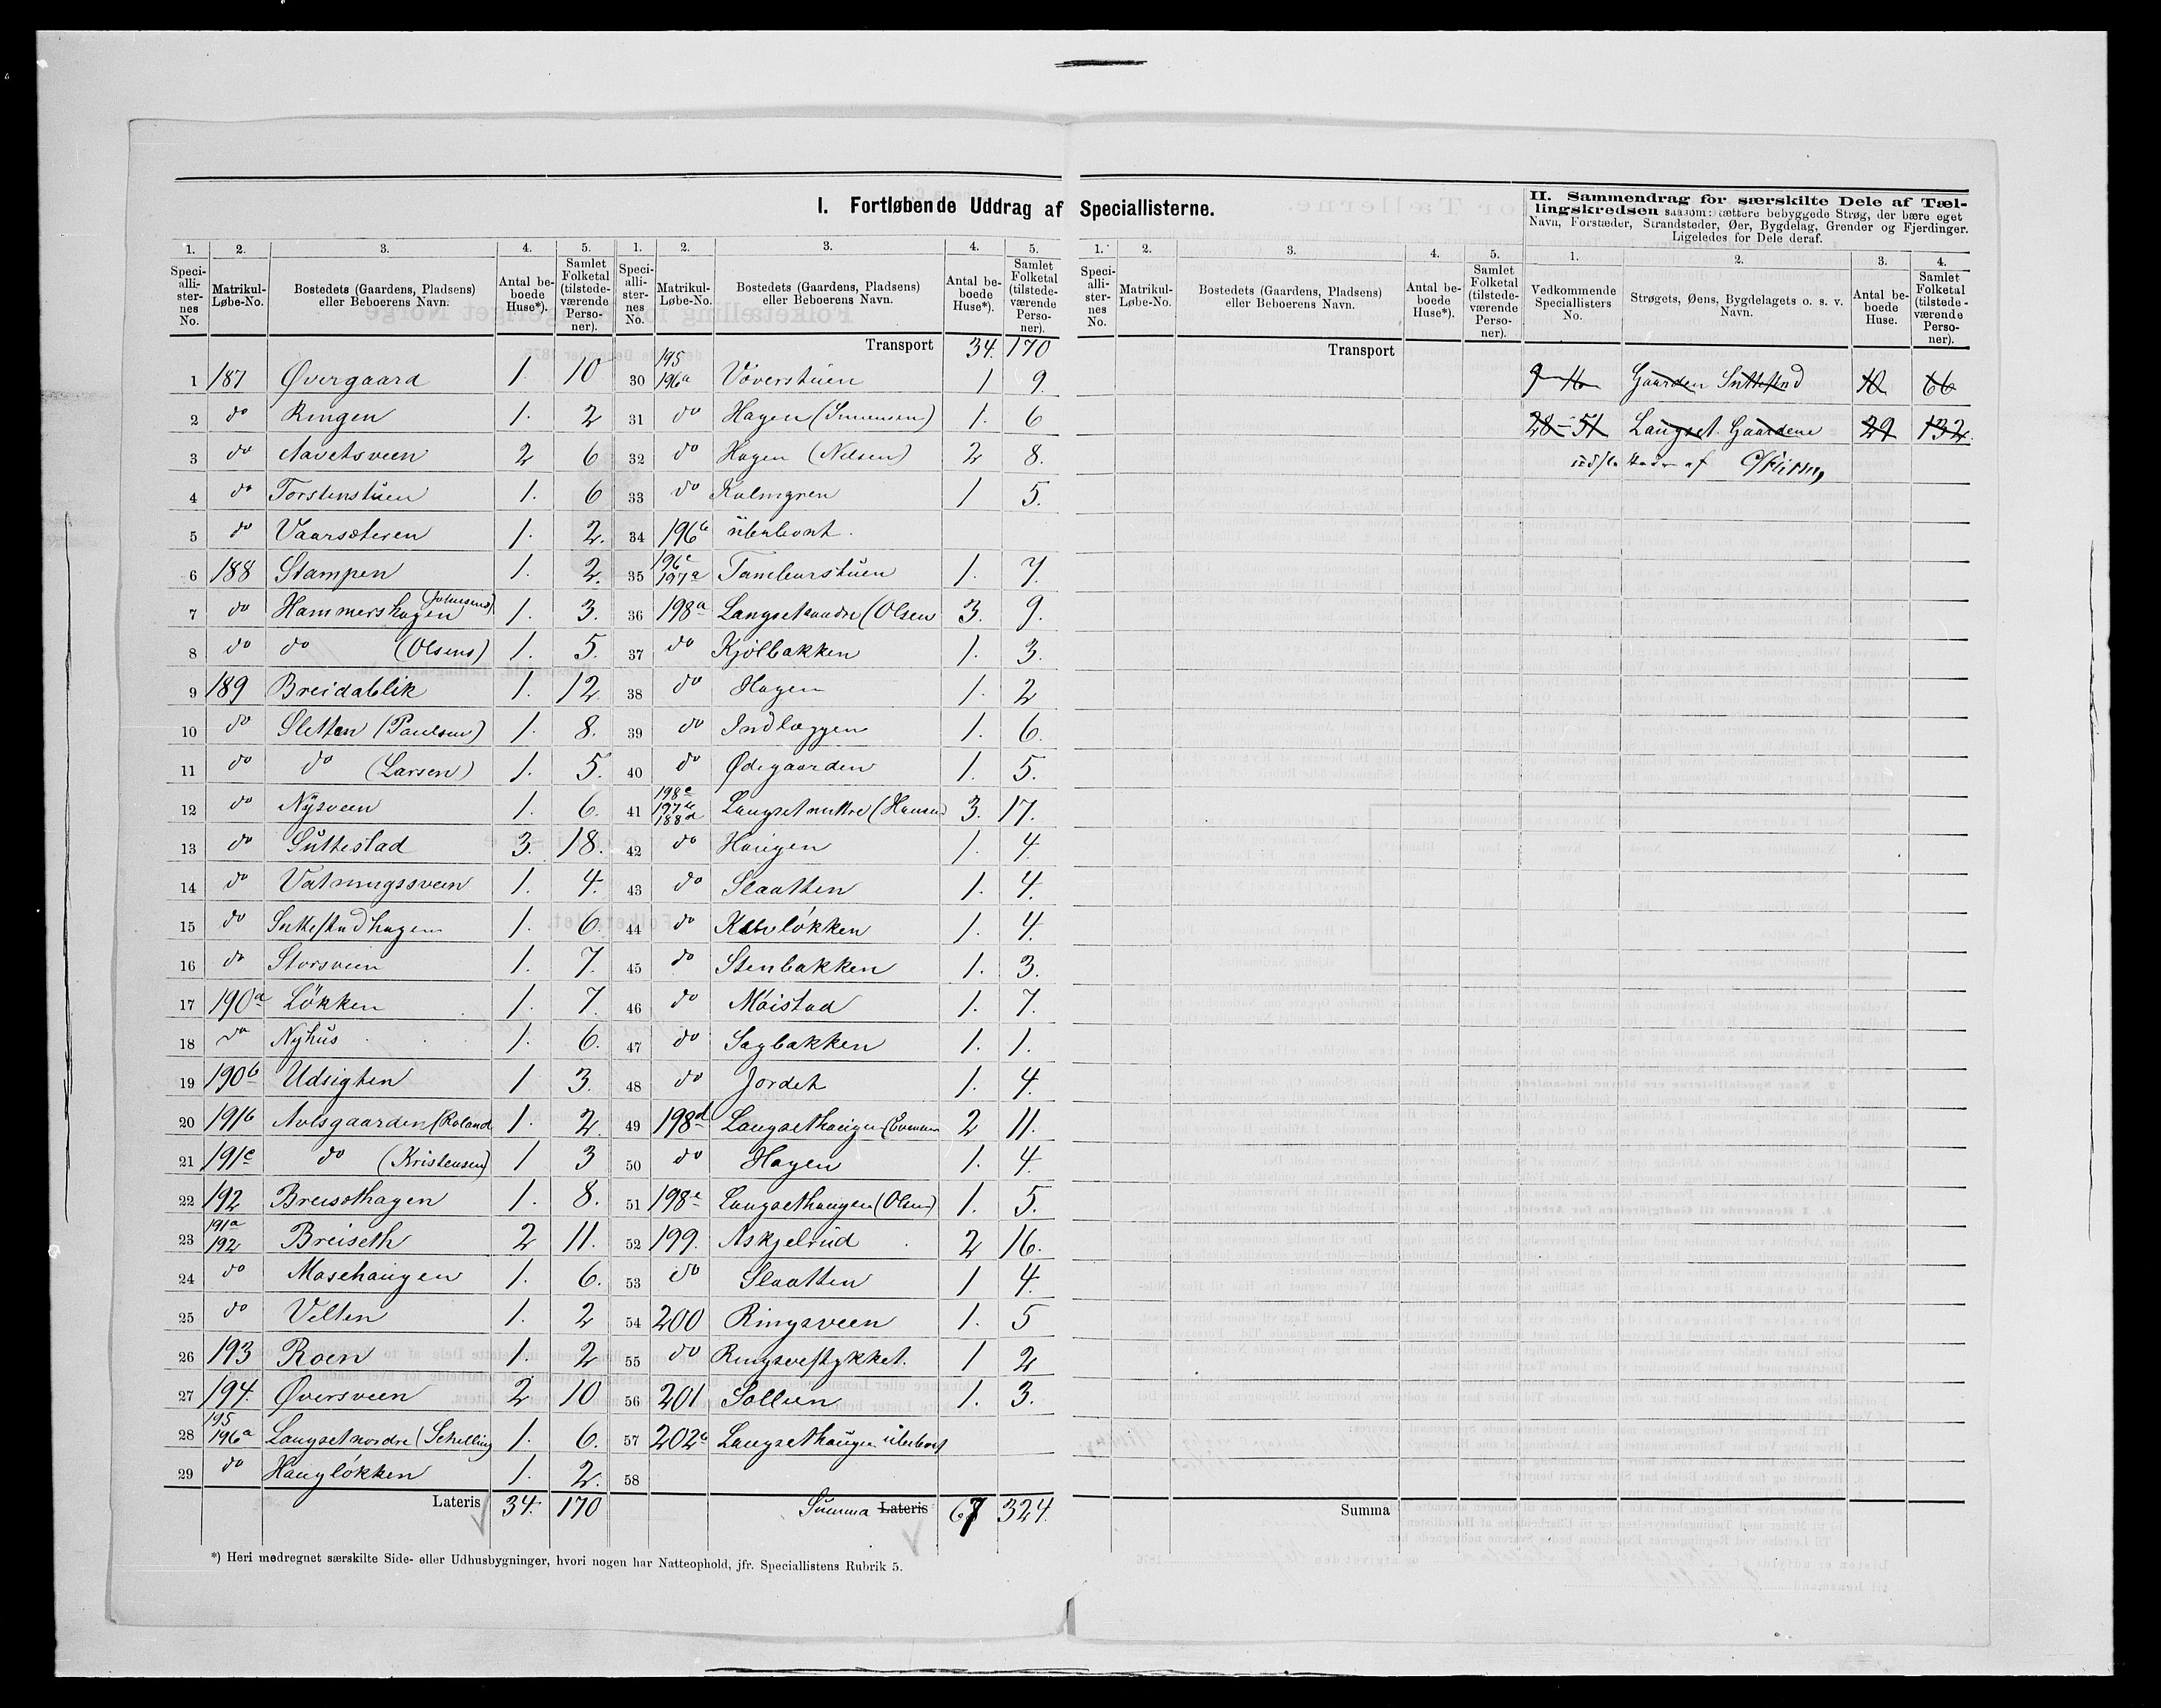 I. Fortløbende Uddrag af Speciallisterne.
1. 2. 3. 4. 5. 1. 2. 3. 4. 5.
Speciallisternes No. Matrikul-Løbe-No. Bostedets (Gaardens, Pladsens) eller Beboerens Navn. Antal beboede Huse*). Samlet Folketal (tilstedeværende Personer).
Speciallisternes No. Matrikul-Løbe-No. Bostedets (Gaardens, Pladsens) eller Beboerens Navn. Antal beboede Huse*). Samlet Folketal (tilstedeværende Personer).
1 187 Øvergaard 1. 10
2 do Ringen 1. 2
3 do Aavetsveen 2 6
4 do Torstenstuen 1. 6
5 do Vaarsæteren 1. 2.
6 188 Stampen 1. 2.
7 do Hammershagen (Johnsens) 1. 3.
8 do do (Olsens) 1. 5.
9 189 Breidablik 1. 12.
10 do Sletten (Paulsen) 1. 8.
11 do do (Larsen) 1. 5.
12 do Nysveen 1. 6.
13 do Suttestad 3. 18.
14 do Vatrungssveen 1. 4.
15 do Suttestadhagen 1. 6.
16 do Storsveen 1. 7.
17 190a Løkken 1. 7.
18 do Nyhus 1. 6.
19 190b Udsigten 1 3.
20 191b Aulsgaarden (Roland 1. 2.
21 191c do (Kristensen) 1 3
22 192 Breisethagen 1. 8.
23 191a 192 Breiseth 2 11.
24 do Masehaugen 1. 6.
25 do Velten 1. 2
26 193 Roen 1. 2
27 194. Øversveen 2 10
28 195 196a Langset nordre (Schilling 1. 6.
29 do Haugløkken 1. 2.
Lateris 34. 170
Transport 34. 170
30 195 196a Vøverstuen 1 9.
31 do Hagen (Simensen) 1. 6
32 do Hagen (Nilsen) 2 8.
33 do Kulmgren 1 5.
34 196b ubeboet.
35 196c 197a Tamburstuen 1. 7.
36 198a Langset søndre (Olsen 3. 9.
37 do Kjølbakken 1. 3.
38 do Hagen 1. 2
39 do Indlæggen 1. 6.
40 do Ødegaarden 1. 5.
41 198c 197b 188d Langset mellre (Hansen 3. 17.
42 do Haugen 1. 4.
43 do Slaatten 1. 4.
44 do Kalvløkken 1. 4.
45 do Stenbakken 1. 3.
46 do Møistad 1. 7.
47 do Sagbakken 1. 1.
48 do Jordet 1. 4.
49 198d Langsethaugen (Evensen 2 11.
50 do Hagen 1. 4.
51 198e Langsethaugen (Olsen) 1. 5.
52 199. Askjelrud 2 16.
53 do Slaatten 1 4.
54 200 Ringsveen 1. 5
55 do Ringsvestykket. 1 2
56 201 Sollien 1. 3.
57 202b Langsethaugen ubeboet
58
Summa Lateris 67 324.
*) Heri medregnet særskilte Side- eller Udhusbygninger, hvori nogen har Natteophold, jfr. Speciallistens Rubrik 5.
1. 2. 3. 4. 5.
Speciallisternes No. Matrikul-Løbe-No. Bostedets (Gaardens, Pladsens) eller Beboerens Navn. Antal beboede Huse*). Samlet Folketal (tilstedeværende Personer).
Transport
Summa
II. Sammendrag for særskilte Dele af Tællingskredsen saasom: tættere bebyggede Strøg, der bære eget Navn, Forstæder, Strandsteder, Øer, Bygdelag, Grender og Fjerdinger. Ligeledes for Dele deraf.
1. 2. 3. 4.
Vedkommende Speciallisters No. Strøgets, Øens, Bygdelagets o. s. v. Navn. Antal beboede Huse. Samlet Folketal (tilstedeværende Personer).
9-16 Gaarden Suttestad 10 66
28-51 Langset Gaardene 29 132.